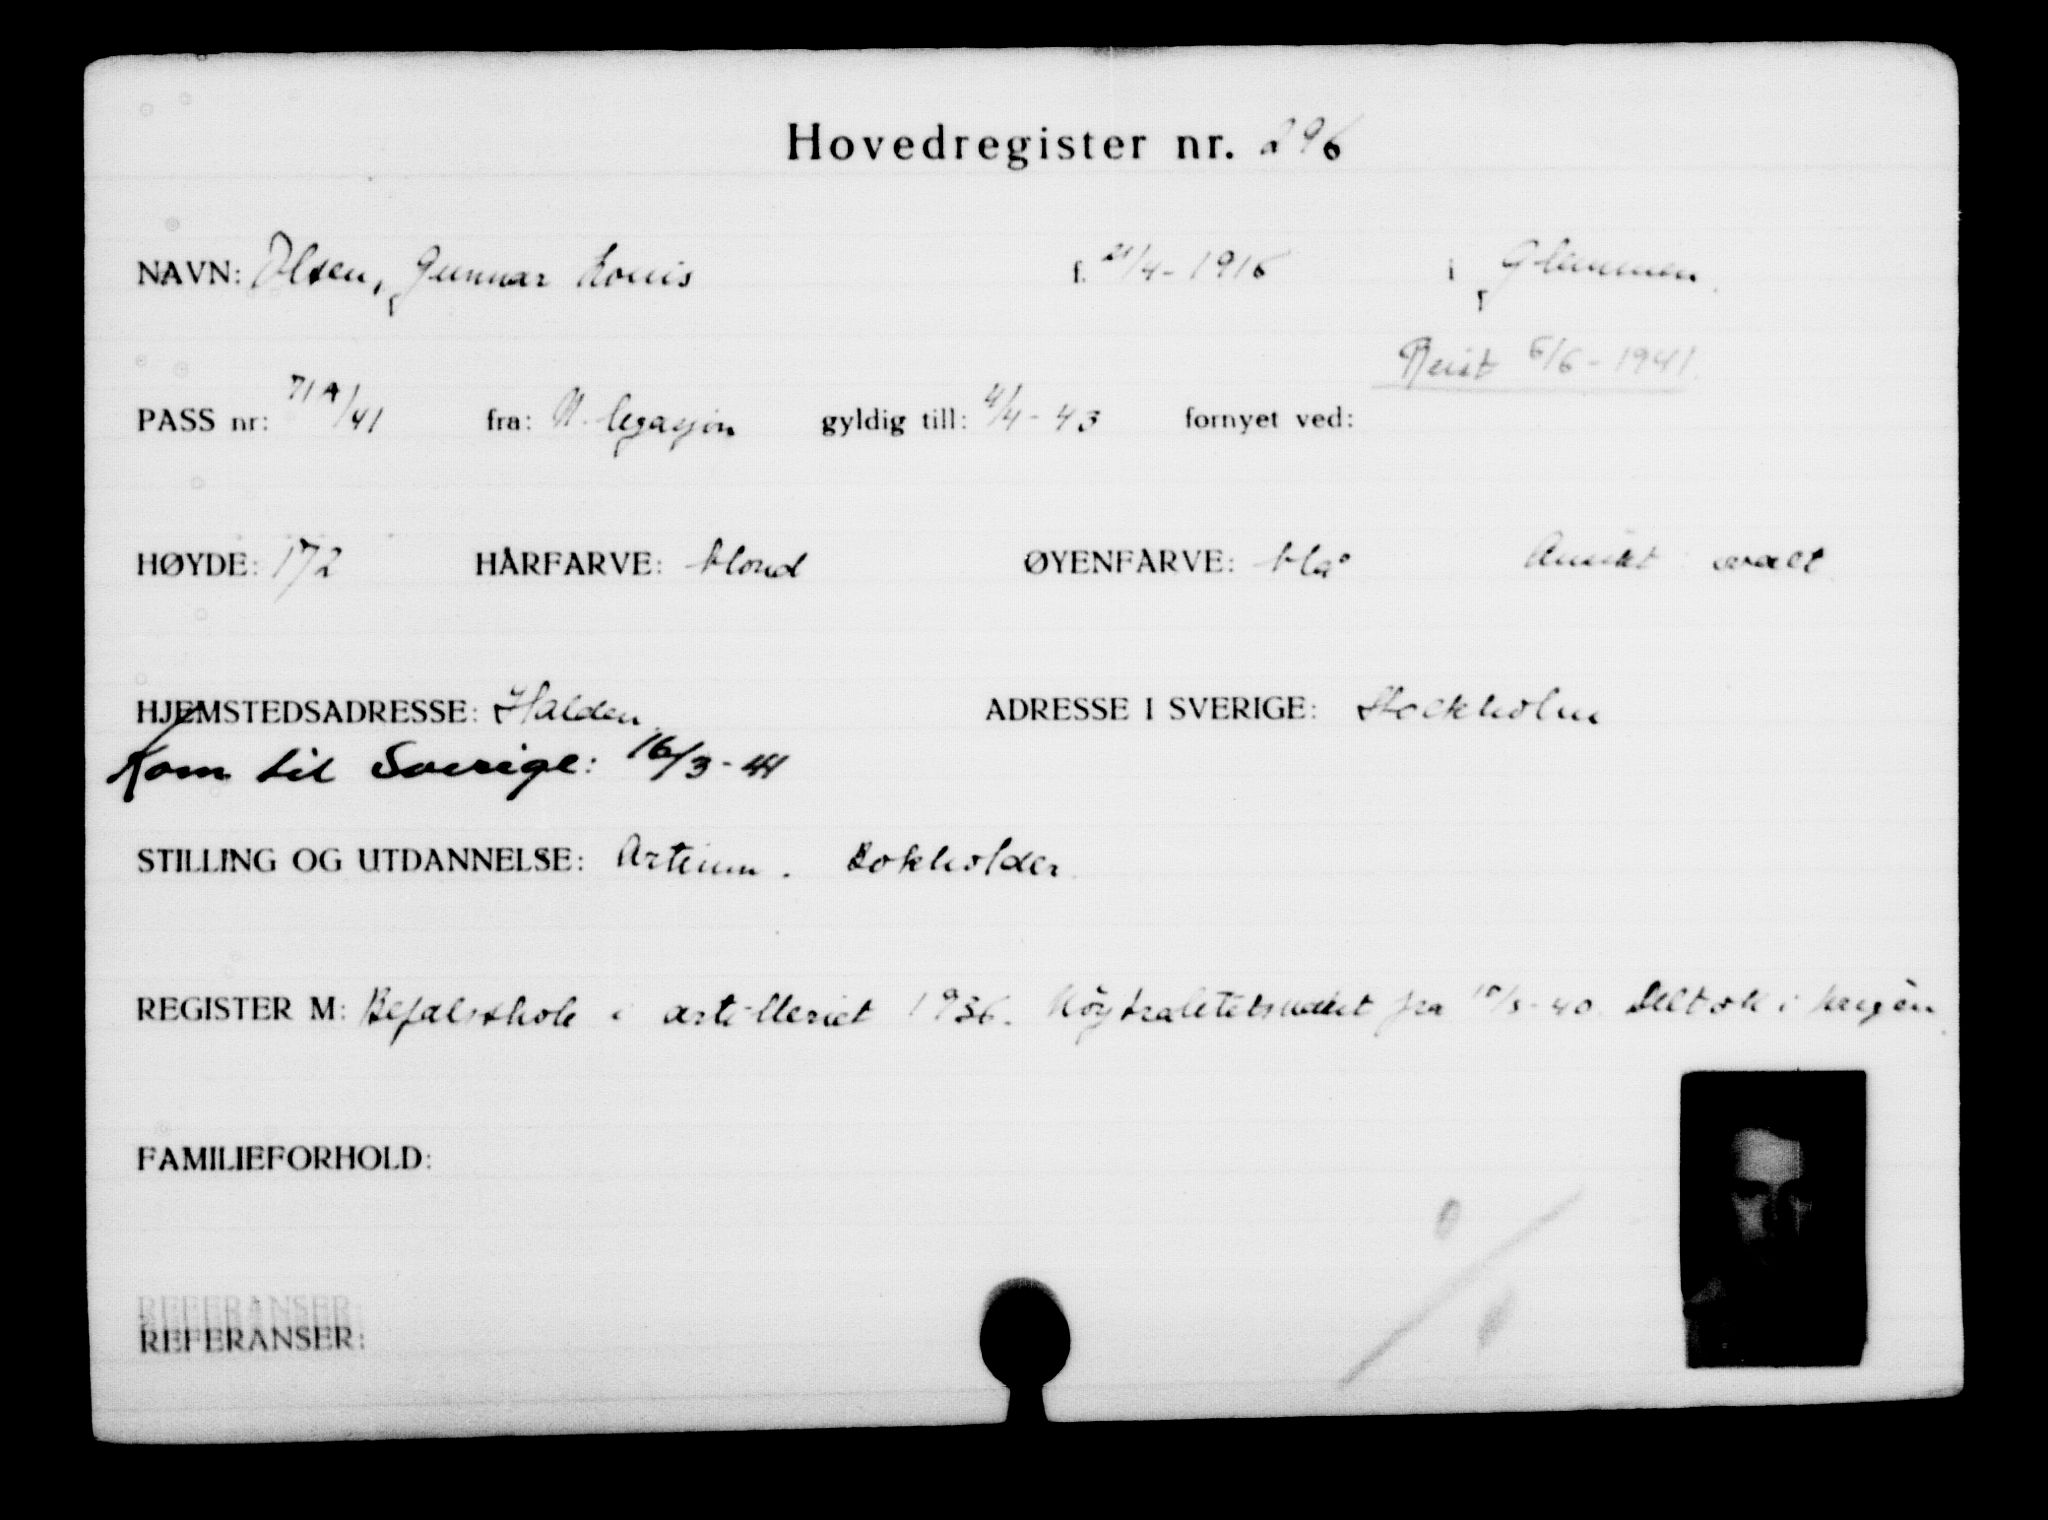 Hovedregister nr. 296
NAVN: Olsen, Gunnar Louis f. 21/4-1916 i Glemmen.
Reist 5/6-1941.
PASS nr: 71A/41 fra: N. legasjon gyldig till: 4/4-43 fornyet ved:
HØYDE: 172 HÅRFARVE: blond ØYENFARVE: blå Ansikt ovalt
HJEMSTEDSADRESSE: Halden. ADRESSE I SVERIGE: Stockholm
Kom til Sverige: 16/3-41
STILLING OG UTDANNELSE: Artium. Bokholder.
REGISTER M: Befalsskole i artilleriet 1936. Nøytralitetsvakt fra 10/3-40. Deltok i krigen.
FAMILIEFORHOLD:
REFERANSER:
REFERANSER: